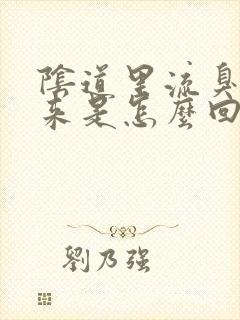 陰道里流臭
來是怎麼回
劉乃強